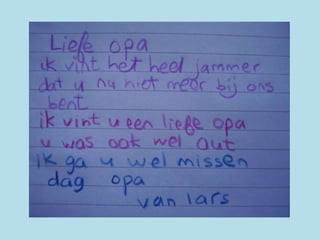 Liefe opa
ik vint het heel jammer
dat u nu niet meer bij ons
bent
ik vint u een liefe opa
u was ook wel out
ik ga u wel missen
dag opa
van lars